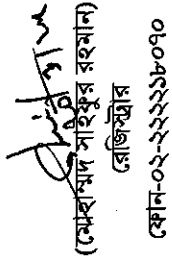 (মোহাম্মদ সাইফুর রহমান)
রেজিস্ট্রার
ফোন-০২-২২২২১৮০৭০